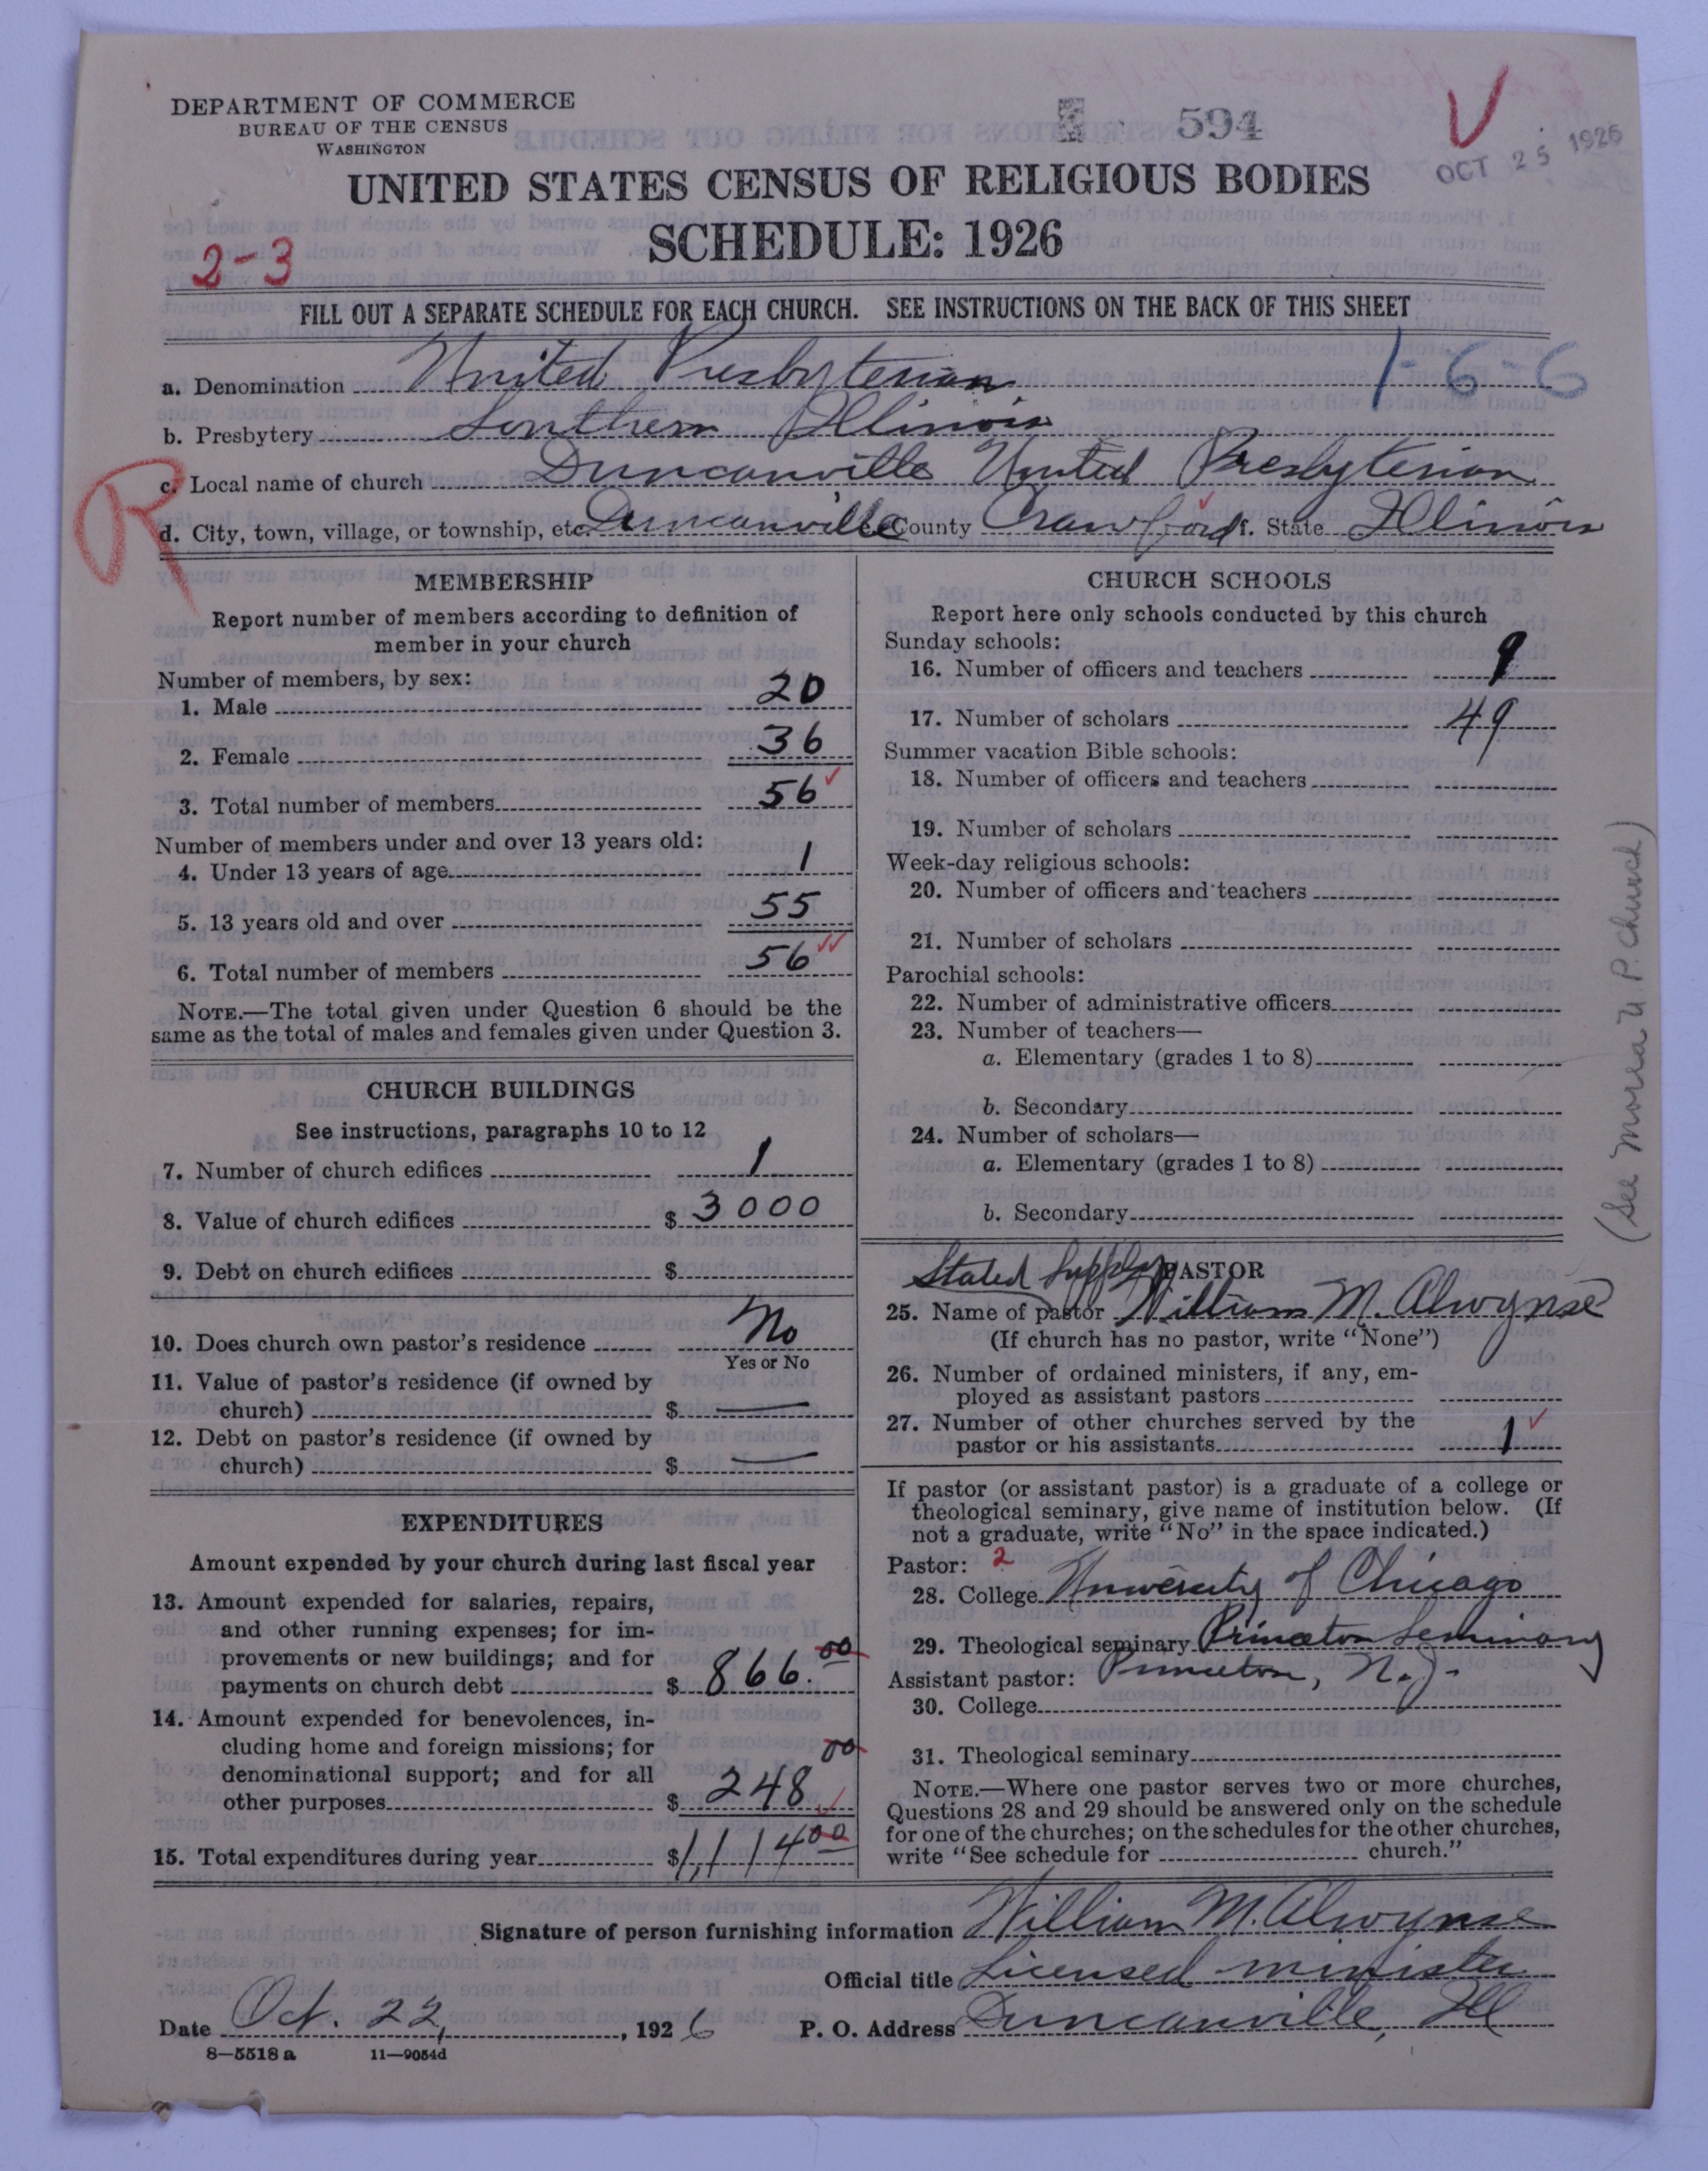 DEPARTMENT OF COMMERCE
BUREAU OF THE CENSUS
WASHINGTON
594
OCT 25 1926
UNITED STATES CENSUS OF RELIGIOUS BODIES
SCHEDULE: 1926
2-3
FILL OUT A SEPARATE SCHEDULE FOR EACH CHURCH. SEE INSTRUCTIONS ON THE BACK OF THIS SHEET
1-6-6
a. Denomination United Presbyterian
b. Presbytery Southern Illinois
R
c. Local name of church Duncanville United Presbyterian
d. City, town, village, or township, etc. Duncanville e. County Crawford f. State Illinois
MEMBERSHIP
Report number of members according to definition of
member in your church
Number of members, by sex:
1. Male 20
2. Female 36
3. Total number of members 56
Number of members under and over 13 years old:
4. Under 13 years of age 1
5. 13 years old and over 55
6. Total number of members 56
NOTE.—The total given under Question 6 should be the
same as the total of males and females given under Question 3.
CHURCH BUILDINGS
See instructions, paragraphs 10 to 12
7. Number of church edifices 1
8. Value of church edifices $ 3000
9. Debt on church edifices $
10. Does church own pastor's residence No
Yes or No
11. Value of pastor's residence (if owned by
church) $ —
12. Debt on pastor's residence (if owned by
church) $ —
EXPENDITURES
Amount expended by your church during last fiscal year
13. Amount expended for salaries, repairs,
and other running expenses; for im-
provements or new buildings; and for
payments on church debt $ 866.00
14. Amount expended for benevolences, in-
cluding home and foreign missions; for
denominational support; and for all
other purposes $ 248 00
15. Total expenditures during year $1,114 00
CHURCH SCHOOLS
Report here only schools conducted by this church
Sunday schools:
16. Number of officers and teachers 9
17. Number of scholars 49
Summer vacation Bible schools:
18. Number of officers and teachers
19. Number of scholars
Week-day religious schools:
20. Number of officers and teachers
21. Number of scholars
Parochial schools:
22. Number of administrative officers
23. Number of teachers—
a. Elementary (grades 1 to 8)
b. Secondary
24. Number of scholars—
a. Elementary (grades 1 to 8)
b. Secondary
(See Morea U. P. Church)
Stated Supply PASTOR
25. Name of pastor William M. Alwynse
(If church has no pastor, write "None")
26. Number of ordained ministers, if any, em-
ployed as assistant pastors
27. Number of other churches served by the
pastor or his assistants 1
If pastor (or assistant pastor) is a graduate of a college or
theological seminary, give name of institution below. (If
not a graduate, write "No" in the space indicated.)
Pastor: 2
28. College University of Chicago
29. Theological seminary Princeton Seminary
Assistant pastor: Princeton, N.J.
30. College
31. Theological seminary
NOTE.—Where one pastor serves two or more churches,
Questions 28 and 29 should be answered only on the schedule
for one of the churches; on the schedules for the other churches,
write "See schedule for church."
Signature of person furnishing information William M. Alwynse
Official title Licensed minister
Date Oct. 22, 1926 P. O. Address Duncanville, Ill
8—5518 a 11—9054d